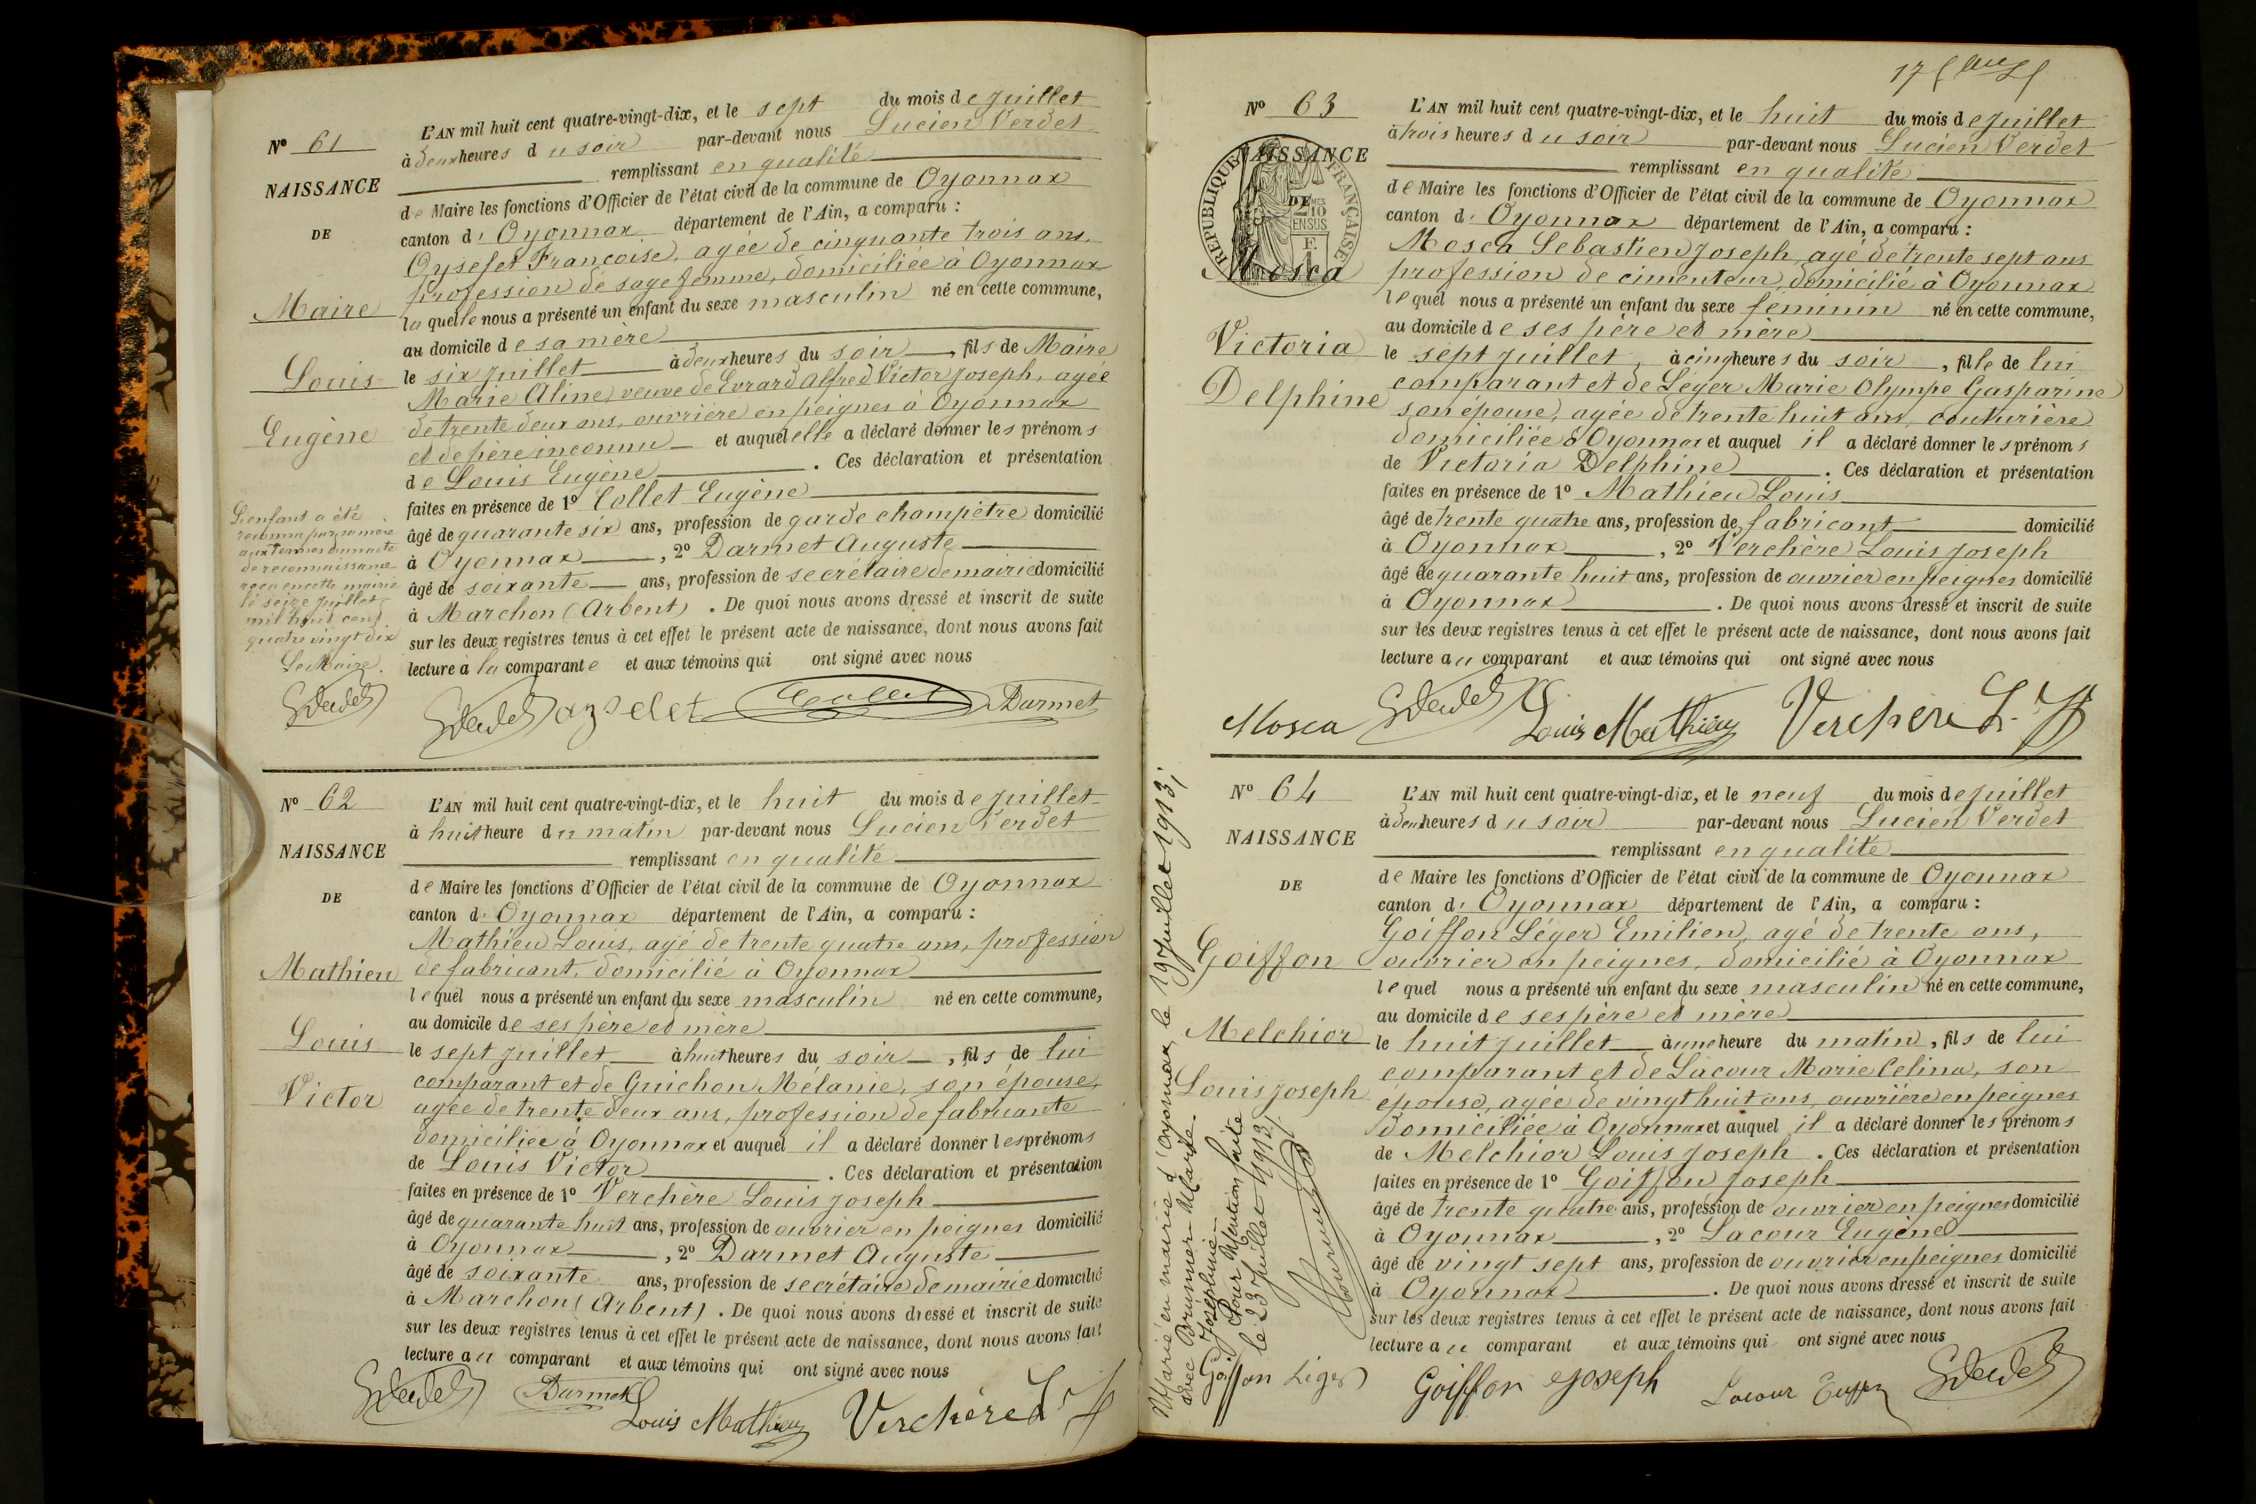 Nº 61
NAISSANCE
DE
Maire
Louis
Eugène
L'enfant a été
reconnu par sa mère
aux termes d'un acte
de reconnaissance
reçu en cette mairie
le seize juillet
mil huit cent
quatre vingt dix
Le Maire.
L'AN mil huit cent quatre-vingt-dix, et le sept du mois de juillet
à deux heures du soir par-devant nous Lucien Verdet
remplissant en qualité
de Maire les fonctions d'Officier de l'état civil de la commune de Oyonnax
canton d' Oyonnax département de l'Ain, a comparu :
Oyselet Françoise, agée de cinquante trois ans,
profession de sage femme, domiciliée à Oyonnax
laquelle nous a présenté un enfant du sexe masculin né en cette commune,
au domicile de sa mère
le six juillet à deux heures du soir, fils de Maire
Marie Aline veuve de Evrard Alfred Victor Joseph, agée
de trente deux ans, ouvrière en peignes à Oyonnax
et de père inconnu et auquel elle a déclaré donner les prénoms
de Louis Eugène. Ces déclaration et présentation
faites en présence de 1º Collet Eugène
âgé de quarante six ans, profession de garde champêtre domicilié
à Oyonnax, 2º Darmet Auguste
âgé de soixante ans, profession de secrétaire de mairie domicilié
à Marchon (Arbent). De quoi nous avons dressé et inscrit de suite
sur les deux registres tenus à cet effet le présent acte de naissance, dont nous avons fait
lecture à la comparante et aux témoins qui ont signé avec nous
Collet Darmet
Nº 62
NAISSANCE
DE
Mathieu
Louis
Victor
L'AN mil huit cent quatre-vingt-dix, et le huit du mois de juillet
à huit heure du matin par-devant nous Lucien Verdet
remplissant en qualité
de Maire les fonctions d'Officier de l'état civil de la commune de Oyonnax
canton d' Oyonnax département de l'Ain, a comparu :
Mathieu Louis, agé de trente quatre ans, profession
de fabricant, domicilié à Oyonnax
lequel nous a présenté un enfant du sexe masculin né en cette commune,
au domicile de ses père et mère
le sept juillet à huit heures du soir, fils de lui
comparant et de Guichon Mélanie, son épouse,
agée de trente deux ans, profession de fabricante
domiciliée à Oyonnax et auquel il a déclaré donner les prénoms
de Louis Victor. Ces déclaration et présentation
faites en présence de 1º Verchère Louis Joseph
âgé de quarante huit ans, profession de ouvrier en peignes domicilié
à Oyonnax, 2º Darmet Auguste
âgé de soixante ans, profession de secrétaire de mairie domicilié
à Marchon (Arbent). De quoi nous avons dressé et inscrit de suite
sur les deux registres tenus à cet effet le présent acte de naissance, dont nous avons fait
lecture au comparant et aux témoins qui ont signé avec nous
Darmet Louis Mathieu Verchère L. J
Nº 63
NAISSANCE
DE
RÉPUBLIQUE FRANÇAISE
Mosca
Victoria
Delphine
L'AN mil huit cent quatre-vingt-dix, et le huit du mois de juillet
à trois heures du soir par-devant nous Lucien Verdet
remplissant en qualité
de Maire les fonctions d'Officier de l'état civil de la commune de Oyonnax
canton d' Oyonnax département de l'Ain, a comparu :
Mosca Sebastien Joseph, agé de trente sept ans
profession de cimenteur, domicilié à Oyonnax
lequel nous a présenté un enfant du sexe féminin né en cette commune,
au domicile de ses père et mère
le sept juillet, à cinq heures du soir, fille de lui
comparant et de Léger Marie Olympe Gasparine
son épouse, agée de trente huit ans, couturière
domiciliée à Oyonnax et auquel il a déclaré donner les prénoms
de Victoria Delphine. Ces déclaration et présentation
faites en présence de 1º Mathieu Louis
âgé de trente quatre ans, profession de fabricant domicilié
à Oyonnax, 2º Verchère Louis Joseph
âgé de quarante huit ans, profession de ouvrier en peignes domicilié
à Oyonnax. De quoi nous avons dressé et inscrit de suite
sur les deux registres tenus à cet effet le présent acte de naissance, dont nous avons fait
lecture au comparant et aux témoins qui ont signé avec nous
Mosca Louis Mathieu Verchère L. J
Nº 64
NAISSANCE
DE
Goiffon
Melchior
Louis Joseph
Marié en mairie d'Oyonnax, le 19 Juillet 1913,
avec Brunner Marie
Joséphine.
Pour Mention faite
le 23 Juillet 1913.
L'AN mil huit cent quatre-vingt-dix, et le neuf du mois de juillet
à deux heures du soir par-devant nous Lucien Verdet
remplissant en qualité
de Maire les fonctions d'Officier de l'état civil de la commune de Oyonnax
canton d' Oyonnax département de l'Ain, a comparu :
Goiffon Léger Emilien, agé de trente ans,
ouvrier en peignes, domicilié à Oyonnax
lequel nous a présenté un enfant du sexe masculin né en cette commune,
au domicile de ses père et mère
le huit juillet à une heure du matin, fils de lui
comparant et de Lacour Marie Celina, son
épouse, agée de vingt huit ans, ouvrière en peignes
domiciliée à Oyonnax et auquel il a déclaré donner les prénoms
de Melchior Louis Joseph. Ces déclaration et présentation
faites en présence de 1º Goiffon Joseph
âgé de trente quatre ans, profession de ouvrier en peignes domicilié
à Oyonnax, 2º Lacour Eugène
âgé de vingt sept ans, profession de ouvrier en peignes domicilié
à Oyonnax. De quoi nous avons dressé et inscrit de suite
sur les deux registres tenus à cet effet le présent acte de naissance, dont nous avons fait
lecture au comparant et aux témoins qui ont signé avec nous
Goiffon Léger Goiffon Joseph Lacour